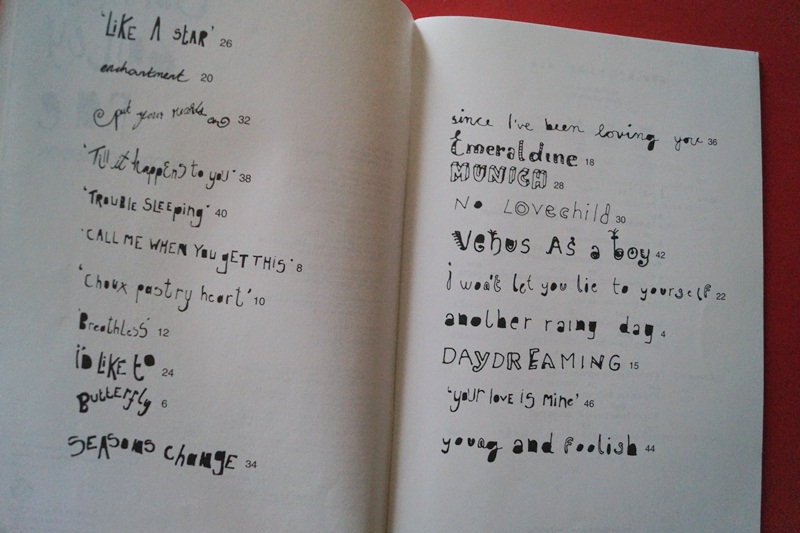 'LiKE A StAR' 26
enchantment 20
put your records on 32
'Till it happens to you' 38
'TROUBLE SLEEPing' 40
'CALL ME WHEN YOU gET THIS' 8
'Choux pastry heart' 10
'Breathless' 12
i'D LiKE to 24
Butterfly 6
SEASons change 34
since I've been loving you 36
Emeraldine 18
MUNICH 28
No LOvechild 30
Venus AS a boy 42
i won't let you lie to yourself 22
another rainy day 4
DAYDREAMING 15
'your love is mine' 46
young and foolish 44